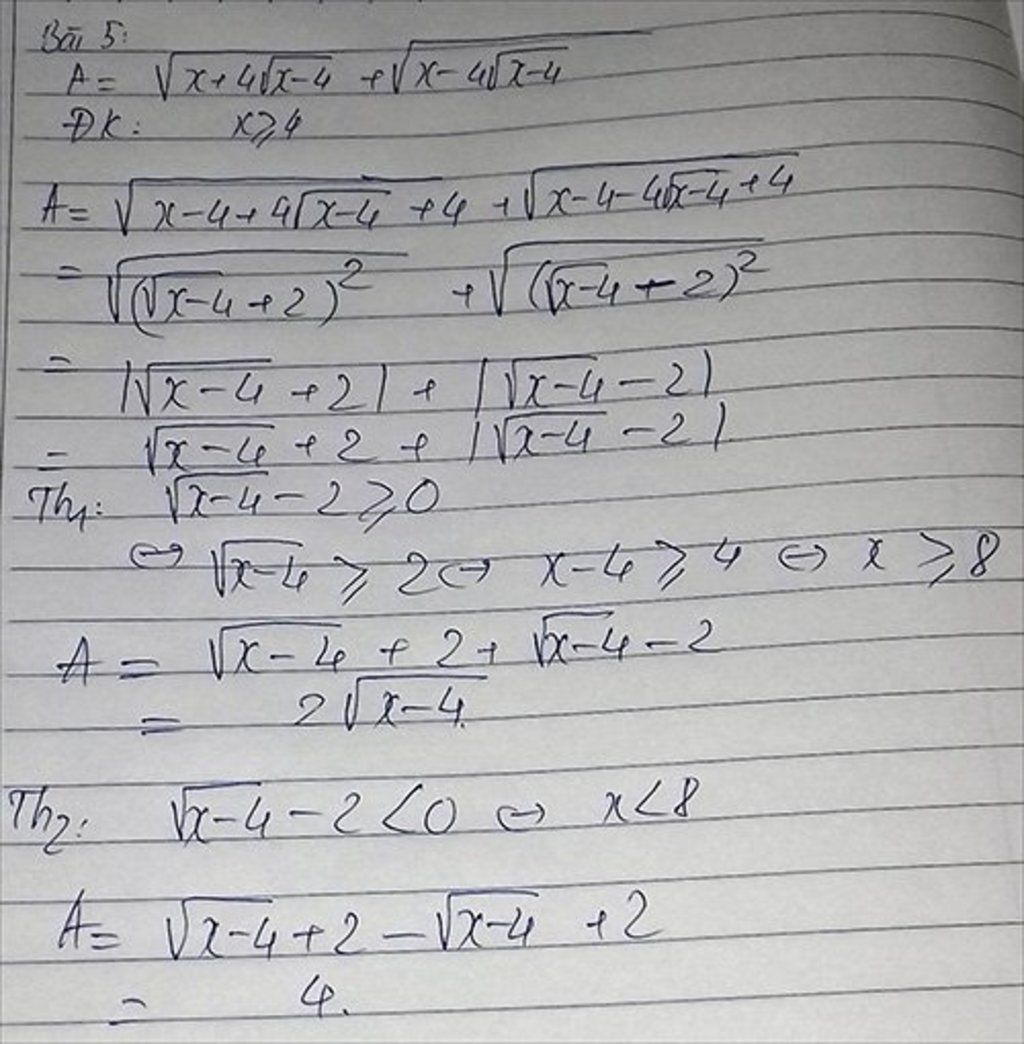 Bài 5:
A = √(x+4√(x-4)) + √(x-4√(x-4))
ĐK: x ≥ 4
A = √(x-4+4√(x-4)+4) + √(x-4-4√(x-4)+4)
= √((√(x-4)+2)²) + √((√(x-4)-2)²)
= |√(x-4)+2| + |√(x-4)-2|
= √(x-4)+2 + |√(x-4)-2|
Th1: √(x-4)-2 ≥ 0
⇔ √(x-4) ≥ 2 ⇔ x-4 ≥ 4 ⇔ x ≥ 8
A = √(x-4)+2+√(x-4)-2
= 2√(x-4).
Th2: √(x-4)-2 < 0 ⇔ x < 8
A = √(x-4)+2-√(x-4)+2
= 4.